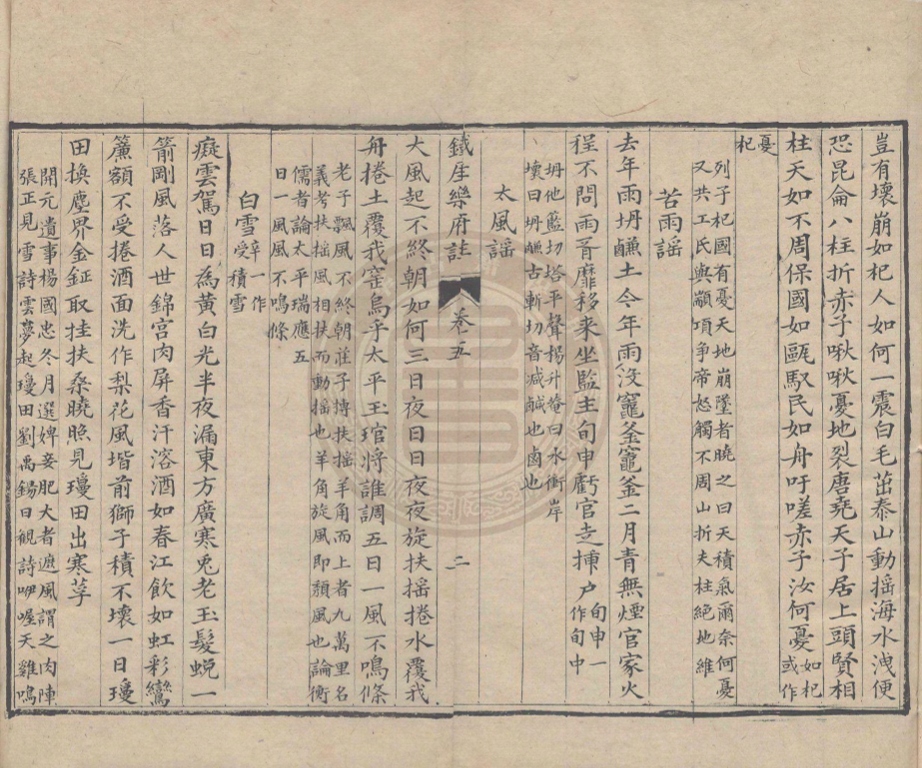 豈有壞崩如杞人如何一震白毛茁泰山動摇海水洩便
恐昆侖八柱折赤子啾啾憂地裂唐堯天子居上頭賢相
柱天如不周保國如甌馭民如舟吁嗟赤子汝何憂或作如杞
憂杞
列子杞國有憂天地崩墜者曉之曰天積氣爾奈何憂
又共工氏與顓頊争帝怒觸不周山折天柱絶地維
苦雨謡
去年雨坍鹽土今年雨没竈釜竈釜二月青無煙官家火
程不問雨胥靡移来坐監主旬申虧官走揷户旬申一作旬中
坍他藍切塔平聲楊升菴曰水衝岸
壞曰坍鹽古斬切音減鹹也鹵也
太風謡
鐵厓樂府註 卷五 二
大風起不終朝如何三日夜日日夜夜旋扶摇捲水覆我
舟捲土覆我窑烏乎太平玉琯將誰調五日一風不鳴條
老子飄風不終朝莊子摶扶摇羊角而上者九萬里名
義考扶摇風相扶而動摇也羊角旋風即頽風也論衡
儒者論太平瑞應五
日一風風不鳴條
白雪辛一作受積雪
癡雲駕日日為黄白光半夜漏東方廣寒兎老玉髮蜕一
箭剛風落人世錦宫肉屏香汗溶酒如春江飲如虹彩鸞
簾額不受捲酒面洗作梨花風堦前獅子積不壞一日瓊
田換塵界金鉦取挂扶桑曉照見瓊田出寒荸
開元遺事楊國忠冬月選婢妾肥大者遮風謂之肉陣
張正見雪詩雲夢起瓊田劉禹錫日觀詩咿喔天雞鳴